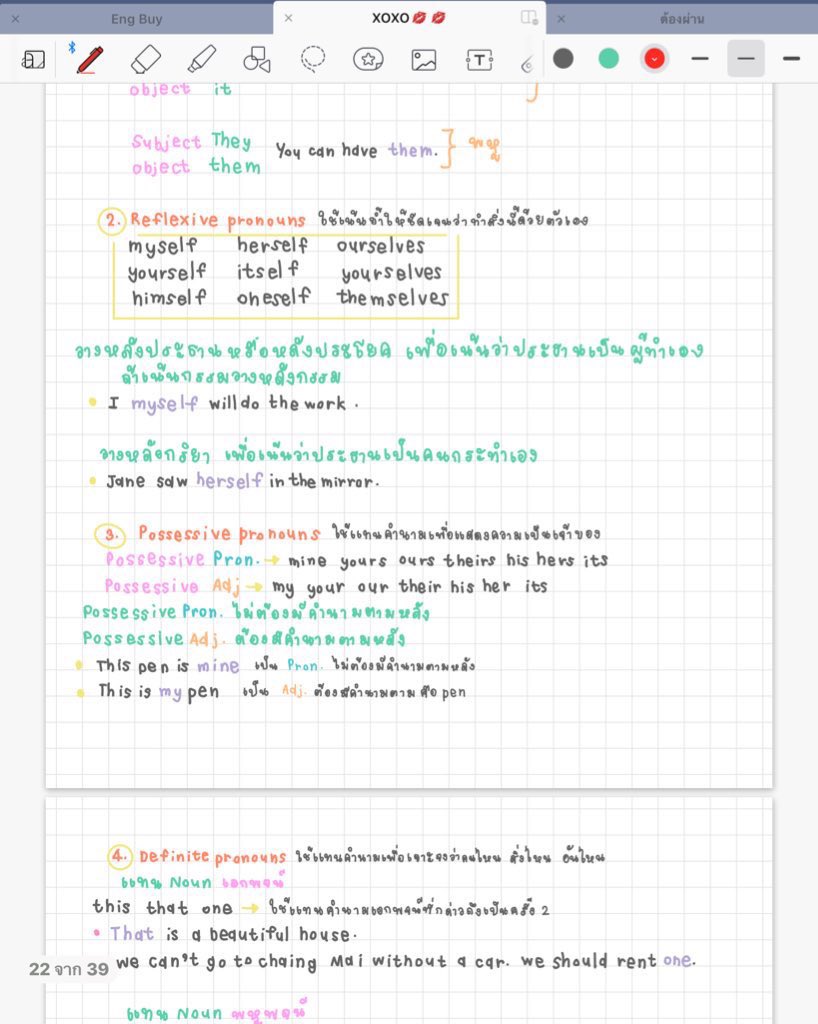 Eng Buy
XOXO💋💋
ต้องผ่าน
object it
Subject They
You can have them.
พหู
object them
2. Reflexive pronouns ใช้เน้นย้ำให้ชัดเจนว่าทำสิ่งนี้ด้วยตัวเอง
myself herself ourselves
yourself itself yourselves
himself oneself themselves
วางหลังประธาน หรือหลังประโยค เพื่อเน้นว่าประธานเป็น ผู้ทำเอง
ถ้าเน้นกรรมวางหลังกรรม
• I myself will do the work.
วางหลังกริยา เพื่อเน้นว่าประธานเป็นคนกระทำเอง
• Jane saw herself in the mirror.
3. Possessive pronouns ใช้แทนคำนามเพื่อแสดงความเป็นเจ้าของ
Possessive Pron. → mine yours ours theirs his hers its
Possessive Adj → my your our their his her its
Possessive Pron. ไม่ต้องมีคำนามตามหลัง
Possessive Adj. ต้องมีคำนามตามหลัง
• This pen is mine เป็น Pron. ไม่ต้องมีคำนามตามหลัง
• This is my pen เป็น Adj. ต้องมีคำนามตาม คือ pen
4. Definite pronouns ใช้แทนคำนามเพื่อเจาะจงว่าคนไหน สิ่งไหน อันไหน
แทน Noun เอกพจน์
this that one → ใช้แทนคำนามเอกพจน์ที่กล่าวถึงเป็นครั้งที่ 2
• That is a beautiful house.
we can't go to chaing Mai without a car. we should rent one.
22 จาก 39
แทน Noun พหูพจน์